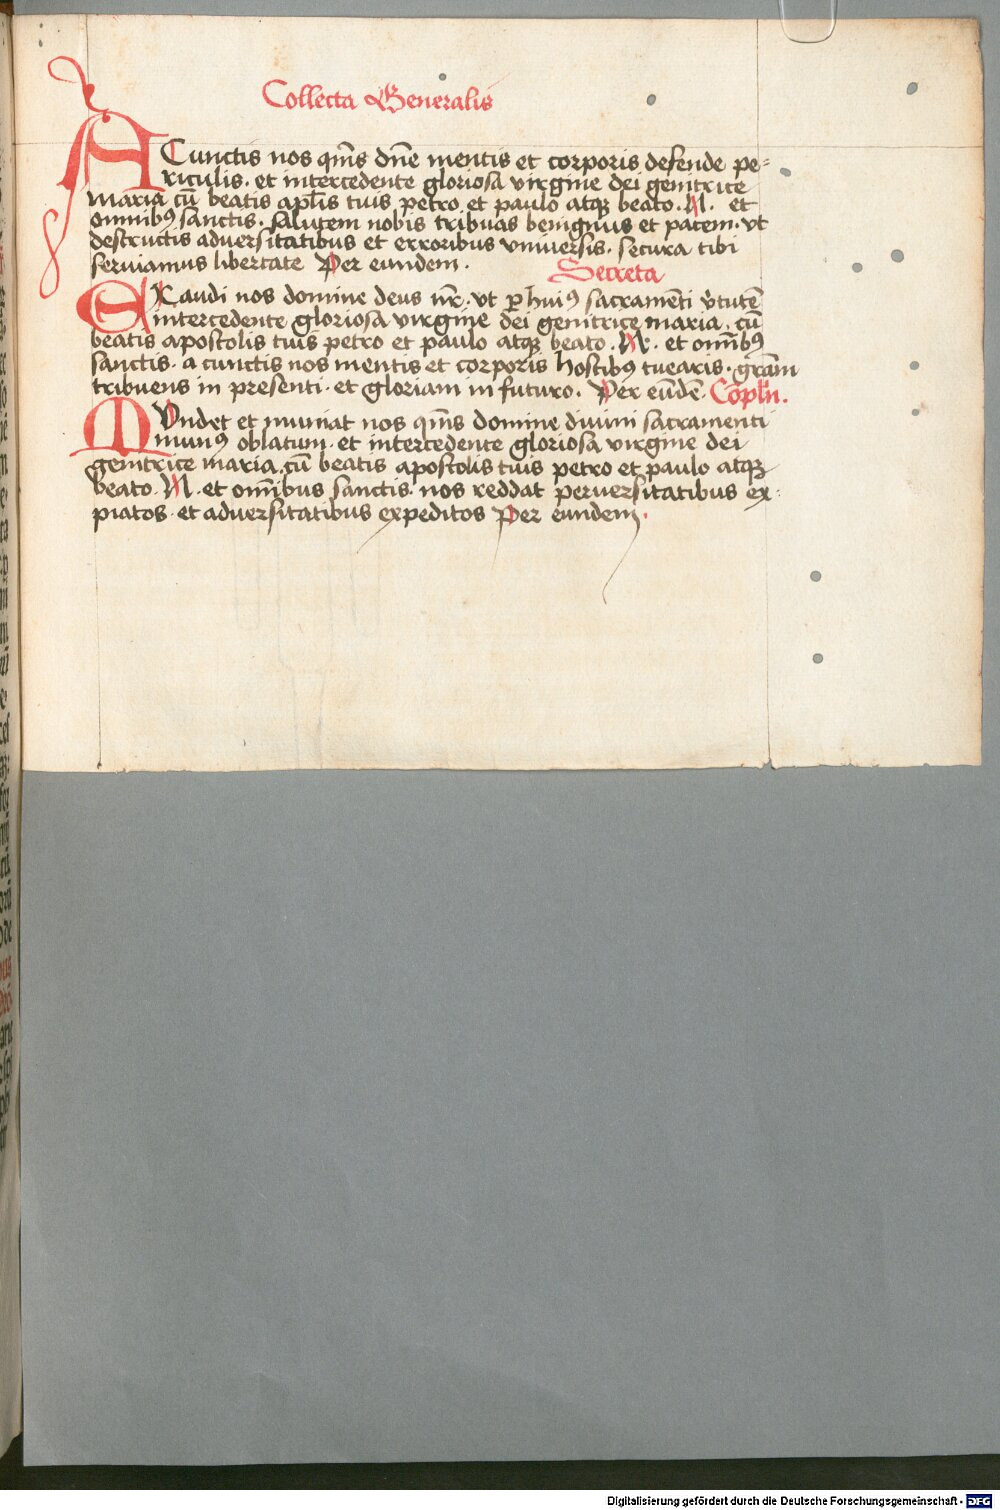 Collecta Generalis
A Cunctis nos qm̄s dn̄e mentis et corporis defende pe-
riculis. et intercedente gloriosa virgine dei genitrice
maria cū beatis apl̄is tuis petro et paulo atqꝫ beato. N. et
omnibꝰ sanctis. salutem nobis tribuas benignus et pacem. vt
destructis adversitatibus et erroribus vniversis. secura tibi
serviamus libertate Per eundem.
Secreta
EXaudi nos domine deus nr̄. vt ꝑ huiꝰ sacramēti v̄tutē
intercedente gloriosa virgine dei genitrice maria. cū
beatis apostolis tuis petro et paulo atqꝫ beato. N. et om̄ibꝰ
sanctis. a cunctis nos mentis et corporis hostibꝰ tuearis. grām
tribuens in presenti. et gloriam in futuro. Per eūdē. Cōpln̄.
MVndet et muniat nos qm̄s domine divini sacramenti
munꝰ oblatum. et intercedente gloriosa virgine dei
genitrice maria. cū beatis apostolis tuis petro et paulo atqꝫ
beato. N. et om̄ibus sanctis. nos reddat perversitatibus ex-
piatos. et adversitatibus expeditos Per eundem.
Digitalisierung gefördert durch die Deutsche Forschungsgemeinschaft - DFG